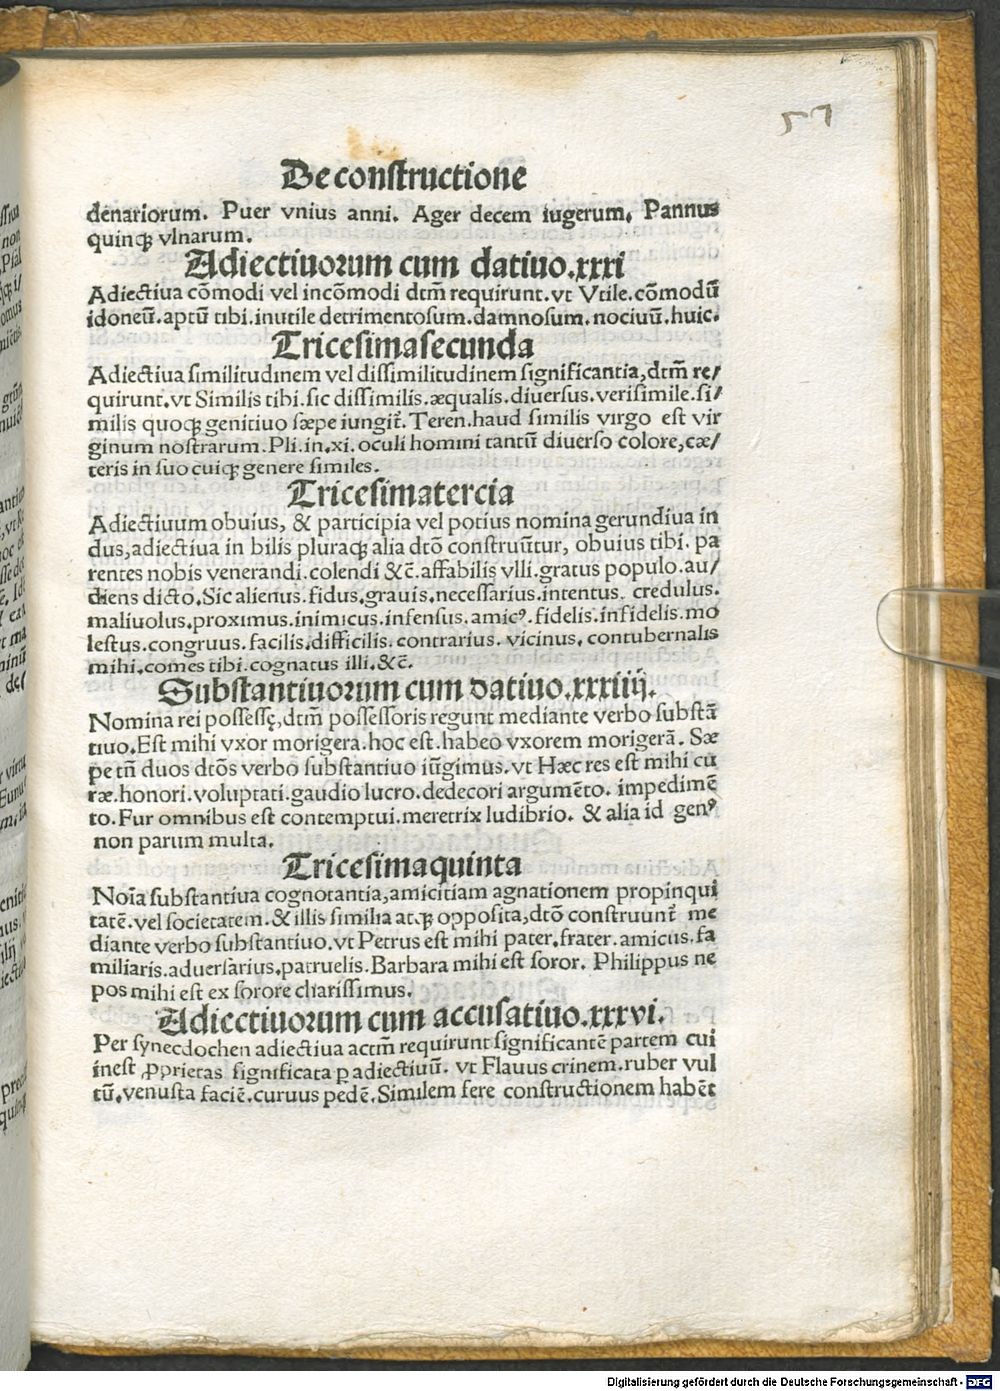 57
De constructione
denariorum. Puer vnius anni. Ager decem iugerum. Pannus
quinqꝫ vlnarum.
Adiectiuorum cum datiuo.xxxi
Adiectiua cōmodi vel incōmodi dtm̄ requirunt.vt Vtile.cōmodū
idoneū.aptū tibi.inutile detrimentosum.damnosum.nociuū.huic.
Tricesimasecunda
Adiectiua similitudinem vel dissimilitudinem significantia,dtm̄ re/
quirunt.vt Similis tibi.sic dissimilis.æqualis.diuersus.verisimile.si/
milis quoqꝫ genitiuo sæpe iungit̄. Teren.haud similis virgo est vir
ginum nostrarum.Pli.in.xi.oculi homini tantū diuerso colore,cæ/
teris in suo cuiqꝫ genere similes.
Tricesimatercia
Adiectiuum obuius, & participia vel potius nomina gerundiua in
dus,adiectiua in bilis pluraqꝫ alia dtō construūtur, obuius tibi. pa
rentes nobis venerandi.colendi &c̄.affabilis vlli.gratus populo.au/
diens dicto.Sic alienus.fidus.grauis.necessarius.intentus. credulus.
maliuolus.proximus.inimicus.infensus.amicꝰ.fidelis.infidelis.mo
lestus.congruus.facilis.difficilis.contrarius. vicinus. contubernalis
mihi.comes tibi.cognatus illi.&c̄.
Substantiuorum cum datiuo.xxxiiij.
Nomina rei possessę,dtm̄ possessoris regunt mediante verbo substā
tiuo.Est mihi vxor morigera.hoc est.habeo vxorem morigerā. Sæ
pe tn̄ duos dtōs verbo substantiuo iūgimus.vt Hæc res est mihi cu
ræ.honori.voluptati.gaudio lucro.dedecori argumēto. impedimē
to.Fur omnibus est contemptui.meretrix ludibrio. & alia id genꝰ
non parum multa.
Tricesimaquinta
Noīa substantiua cognotantia,amicitiam agnationem propinqui
tatē.vel societatem.& illis similia atqꝫ opposita,dtō construunt̄ me
diante verbo substantiuo.vt Petrus est mihi pater.frater.amicus.fa
miliaris.aduersarius.patruelis.Barbara mihi est soror. Philippus ne
pos mihi est ex sorore charissimus.
Adiectiuorum cum accusatiuo.xxxvi.
Per synecdochen adiectiua actm̄ requirunt significantē partem cui
inest ꝓprietas significata ꝑ adiectiuū. vt Flauus crinem.ruber vul
tū.venusta faciē.curuus pedē.Similem fere constructionem habēt
Digitalisierung gefördert durch die Deutsche Forschungsgemeinschaft - DFG